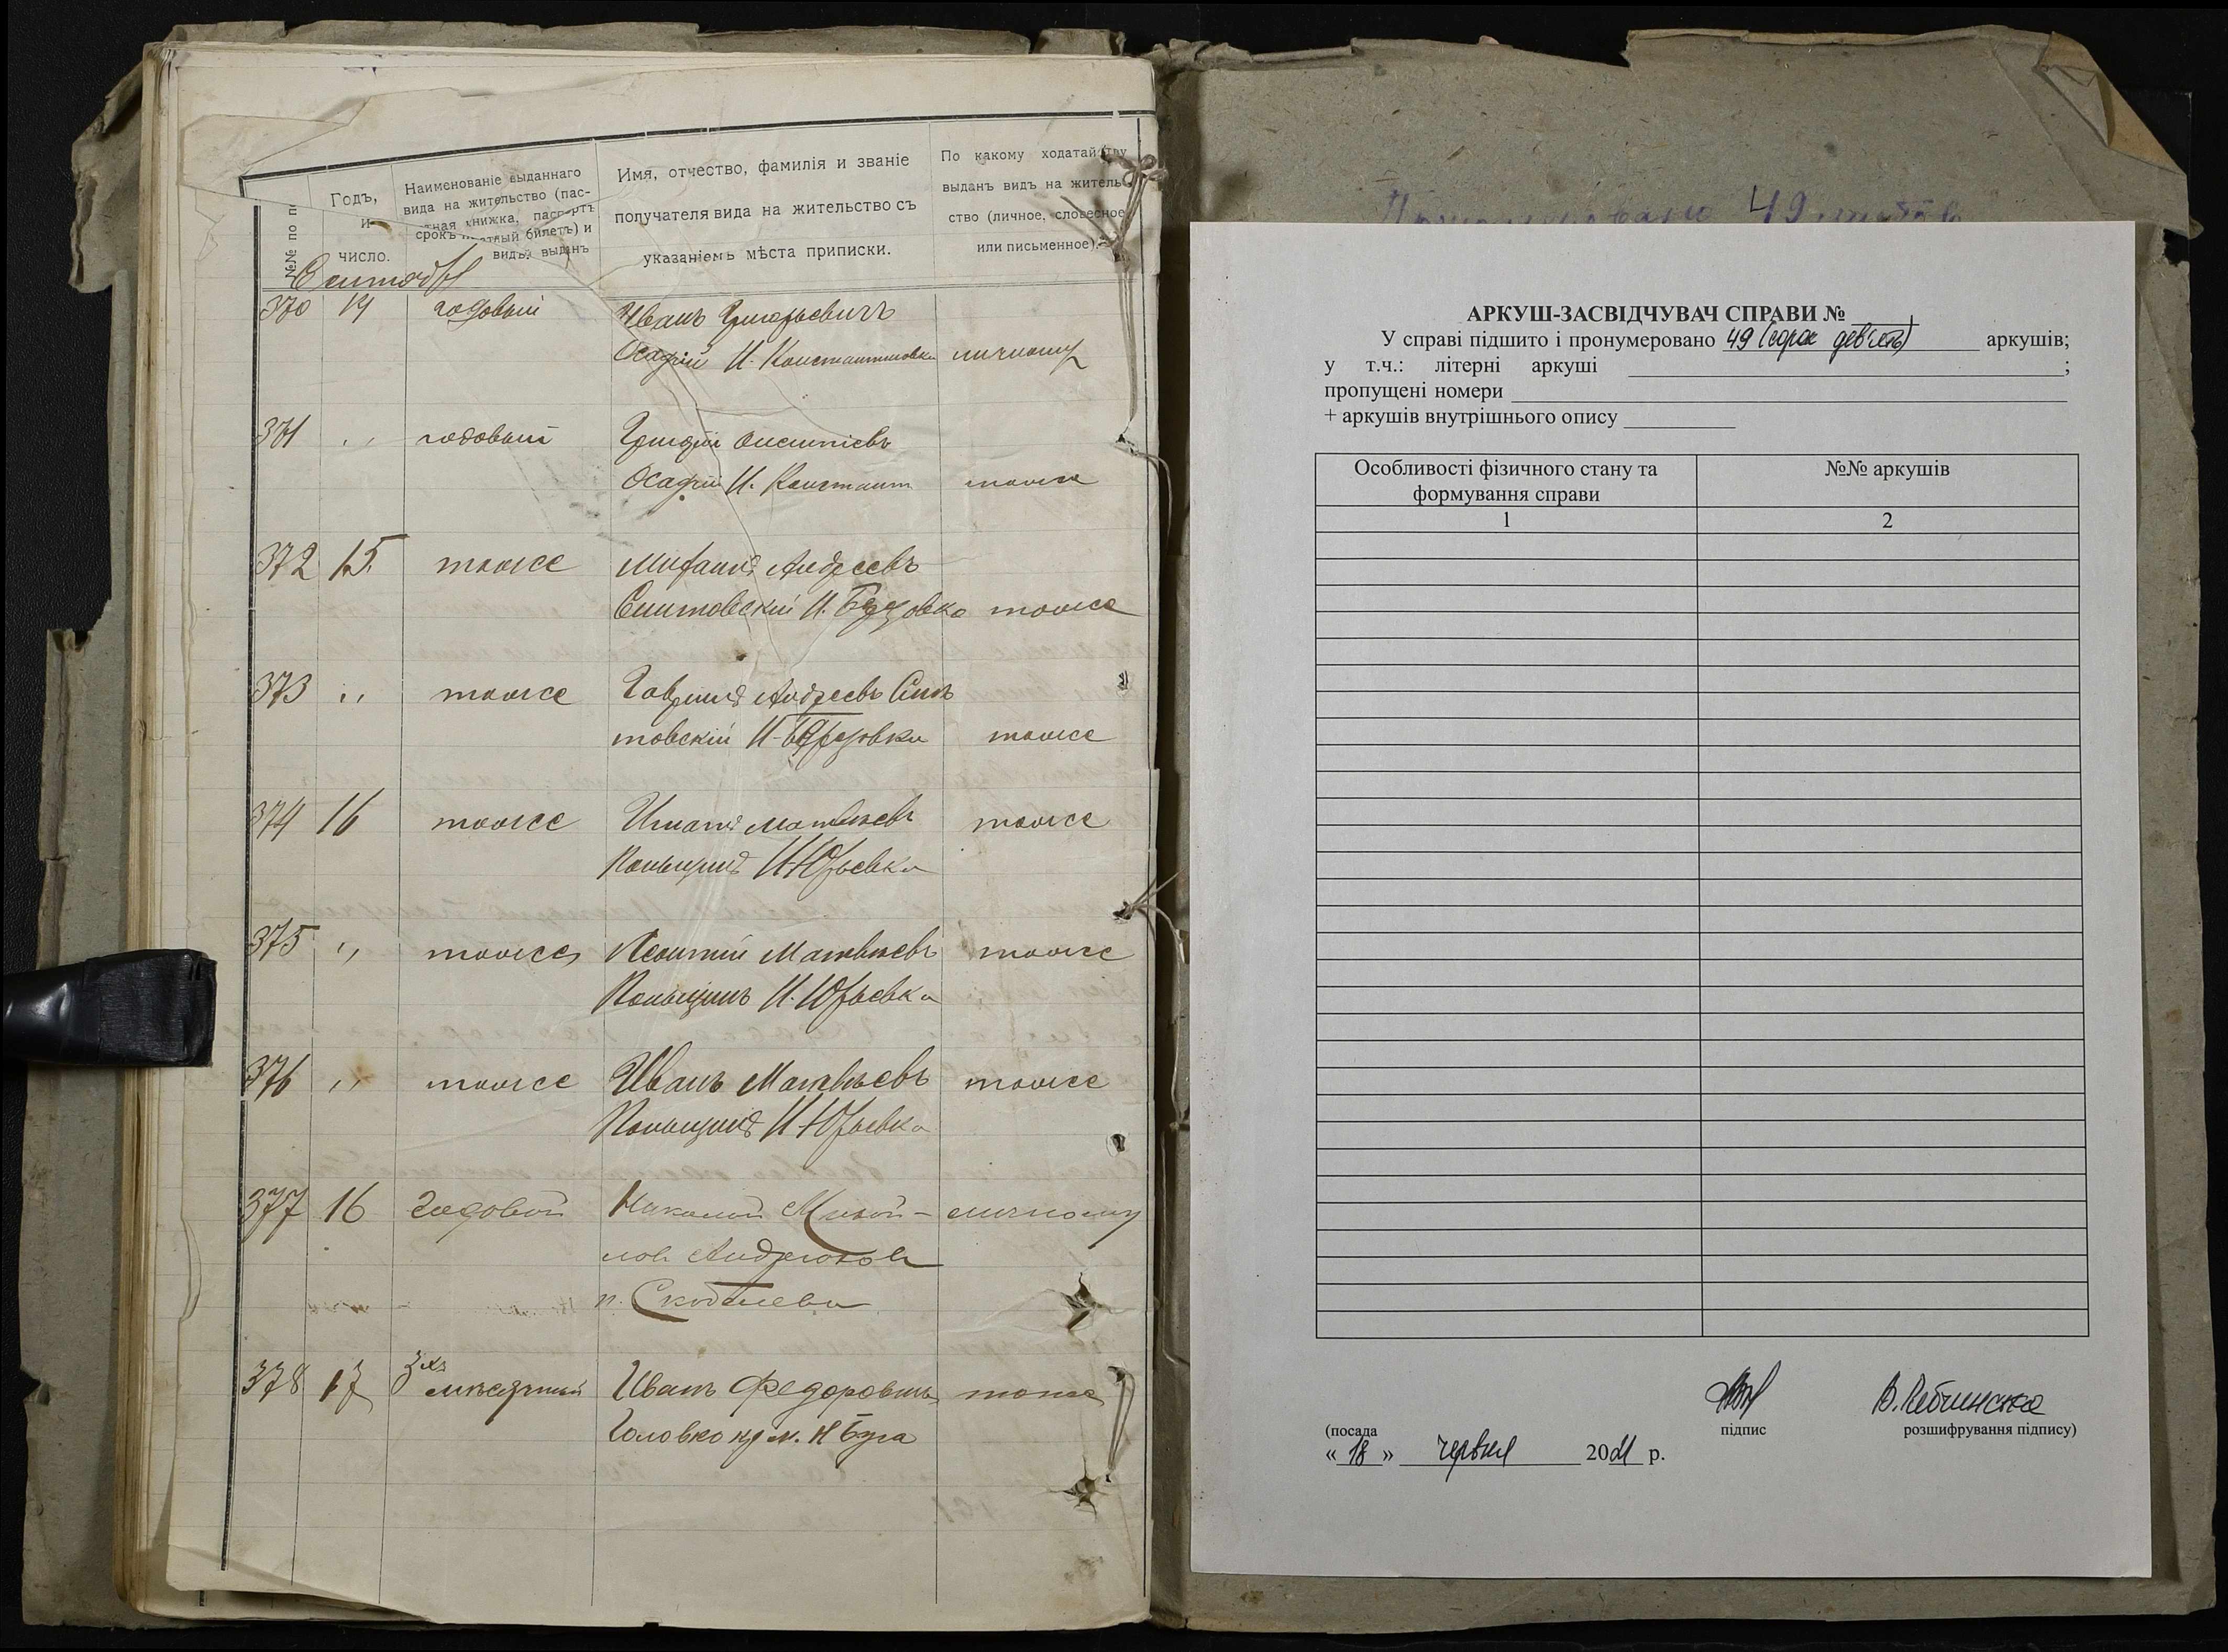 №№ по п
Годъ,
и
число.
Наименованіе выданнаго
вида на жительство (пас-
тная книжка, паспортъ
билетъ) и
срокъ
видъ выданъ
Имя, отчество, фамилія и званіе
получателя вида на жительство съ
указаніемъ мѣста приписки.
По какому ходатайству
выданъ видъ на житель-
ство (личное, словесное,
или письменное).
370 14 годовый Иванъ Григорьевичъ
Осадчій Н. Константиновка личному
371 „ годовый Григорій
Осадчій Н. Констант тоже
372 15. тоже Михаилъ Андреевъ
Н. тоже
373 „ тоже Гавриилъ Андреевъ
товскій Н. тоже
374 16 тоже Игнатъ Матвѣевъ тоже
Н. Юрьевка
375 „ тоже Леонтій Матвѣевъ тоже
Н. Юрьевка
376 „ тоже Иванъ Матвѣевъ тоже
Н. Юрьевка
377 16 годовой Николай Михай- личному
лов Андрюков
п. Скобелева
378 17 3хъ мѣсячный Иванъ Федоровичъ тоже
Головко Н Буга
49
АРКУШ-ЗАСВІДЧУВАЧ СПРАВИ №
У справі підшито і пронумеровано 49 (сорок дев'ять) аркушів;
у т.ч.: літерні аркуші ;
пропущені номери
+ аркушів внутрішнього опису
Особливості фізичного стану та
формування справи
№№ аркушів
1 2
(посада підпис розшифрування підпису)
« 18 » червня 2021 р.